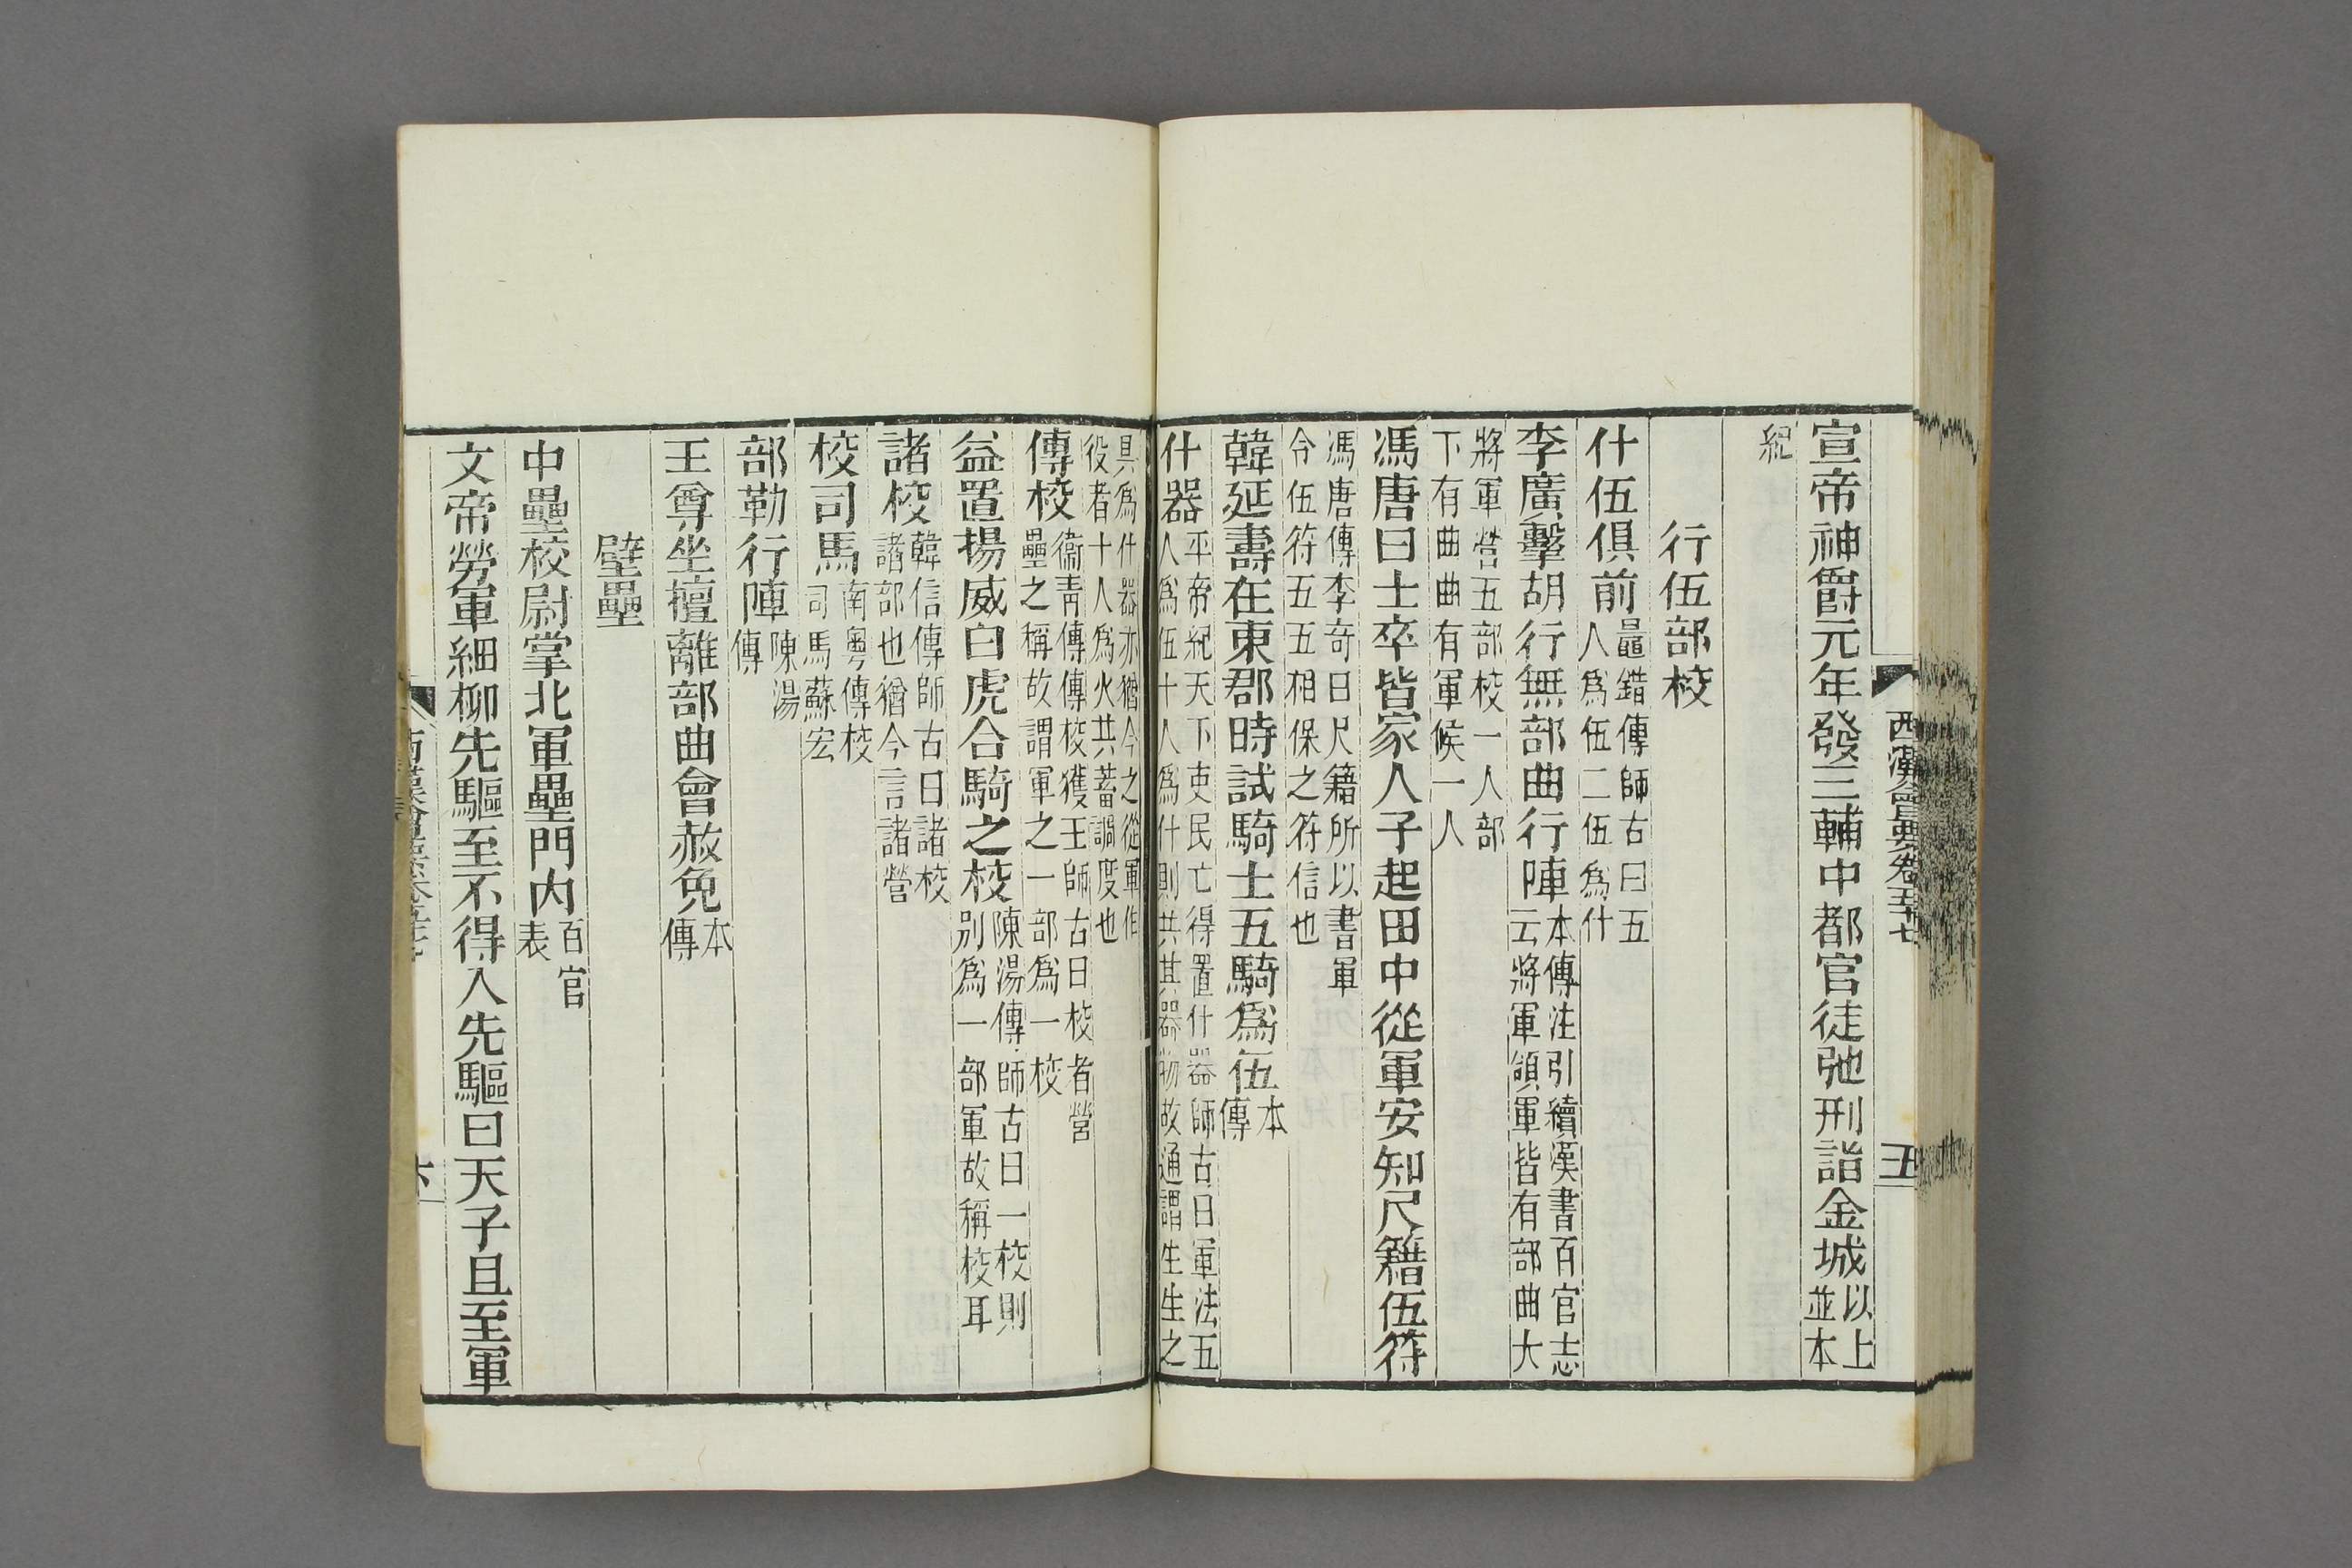 西漢會要卷五十七
五
宣帝神爵元年發三輔中都官徒弛刑詣金城以上並本
紀
行伍部校
什伍俱前鼂錯傳師古曰五人爲伍二伍爲什
李廣擊胡行無部曲行陣本傳注引續漢書百官志云將軍領軍皆有部曲大
將軍營五部校一人部下有曲曲有軍候一人
馮唐曰士卒皆家人子起田中從軍安知尺籍伍符
馮唐傳李奇曰尺籍所以書軍令伍符五五相保之符信也
韓延壽在東郡時試騎士五騎爲伍本傳
什器平帝紀天下吏民亡得置什器師古曰軍法五人爲伍十人爲什則共其器物故通謂生生之
具爲什器亦猶今之從軍作役者十人爲火共蓄調度也
傳校衞青傳傳校獲王師古曰校者營壘之稱故謂軍之一部爲一校
益置揚威白虎合騎之校陳湯傳師古曰一校則別爲一部軍故稱校耳
諸校韓信傳師古曰諸校諸部也猶今言諸營
校司馬南粵傳校司馬蘇宏
部勒行陣陳湯傳
王尊坐擅離部曲會赦免本傳
壁壘
中壘校尉掌北軍壘門内百官表
文帝勞軍細柳先驅至不得入先驅曰天子且至軍
六